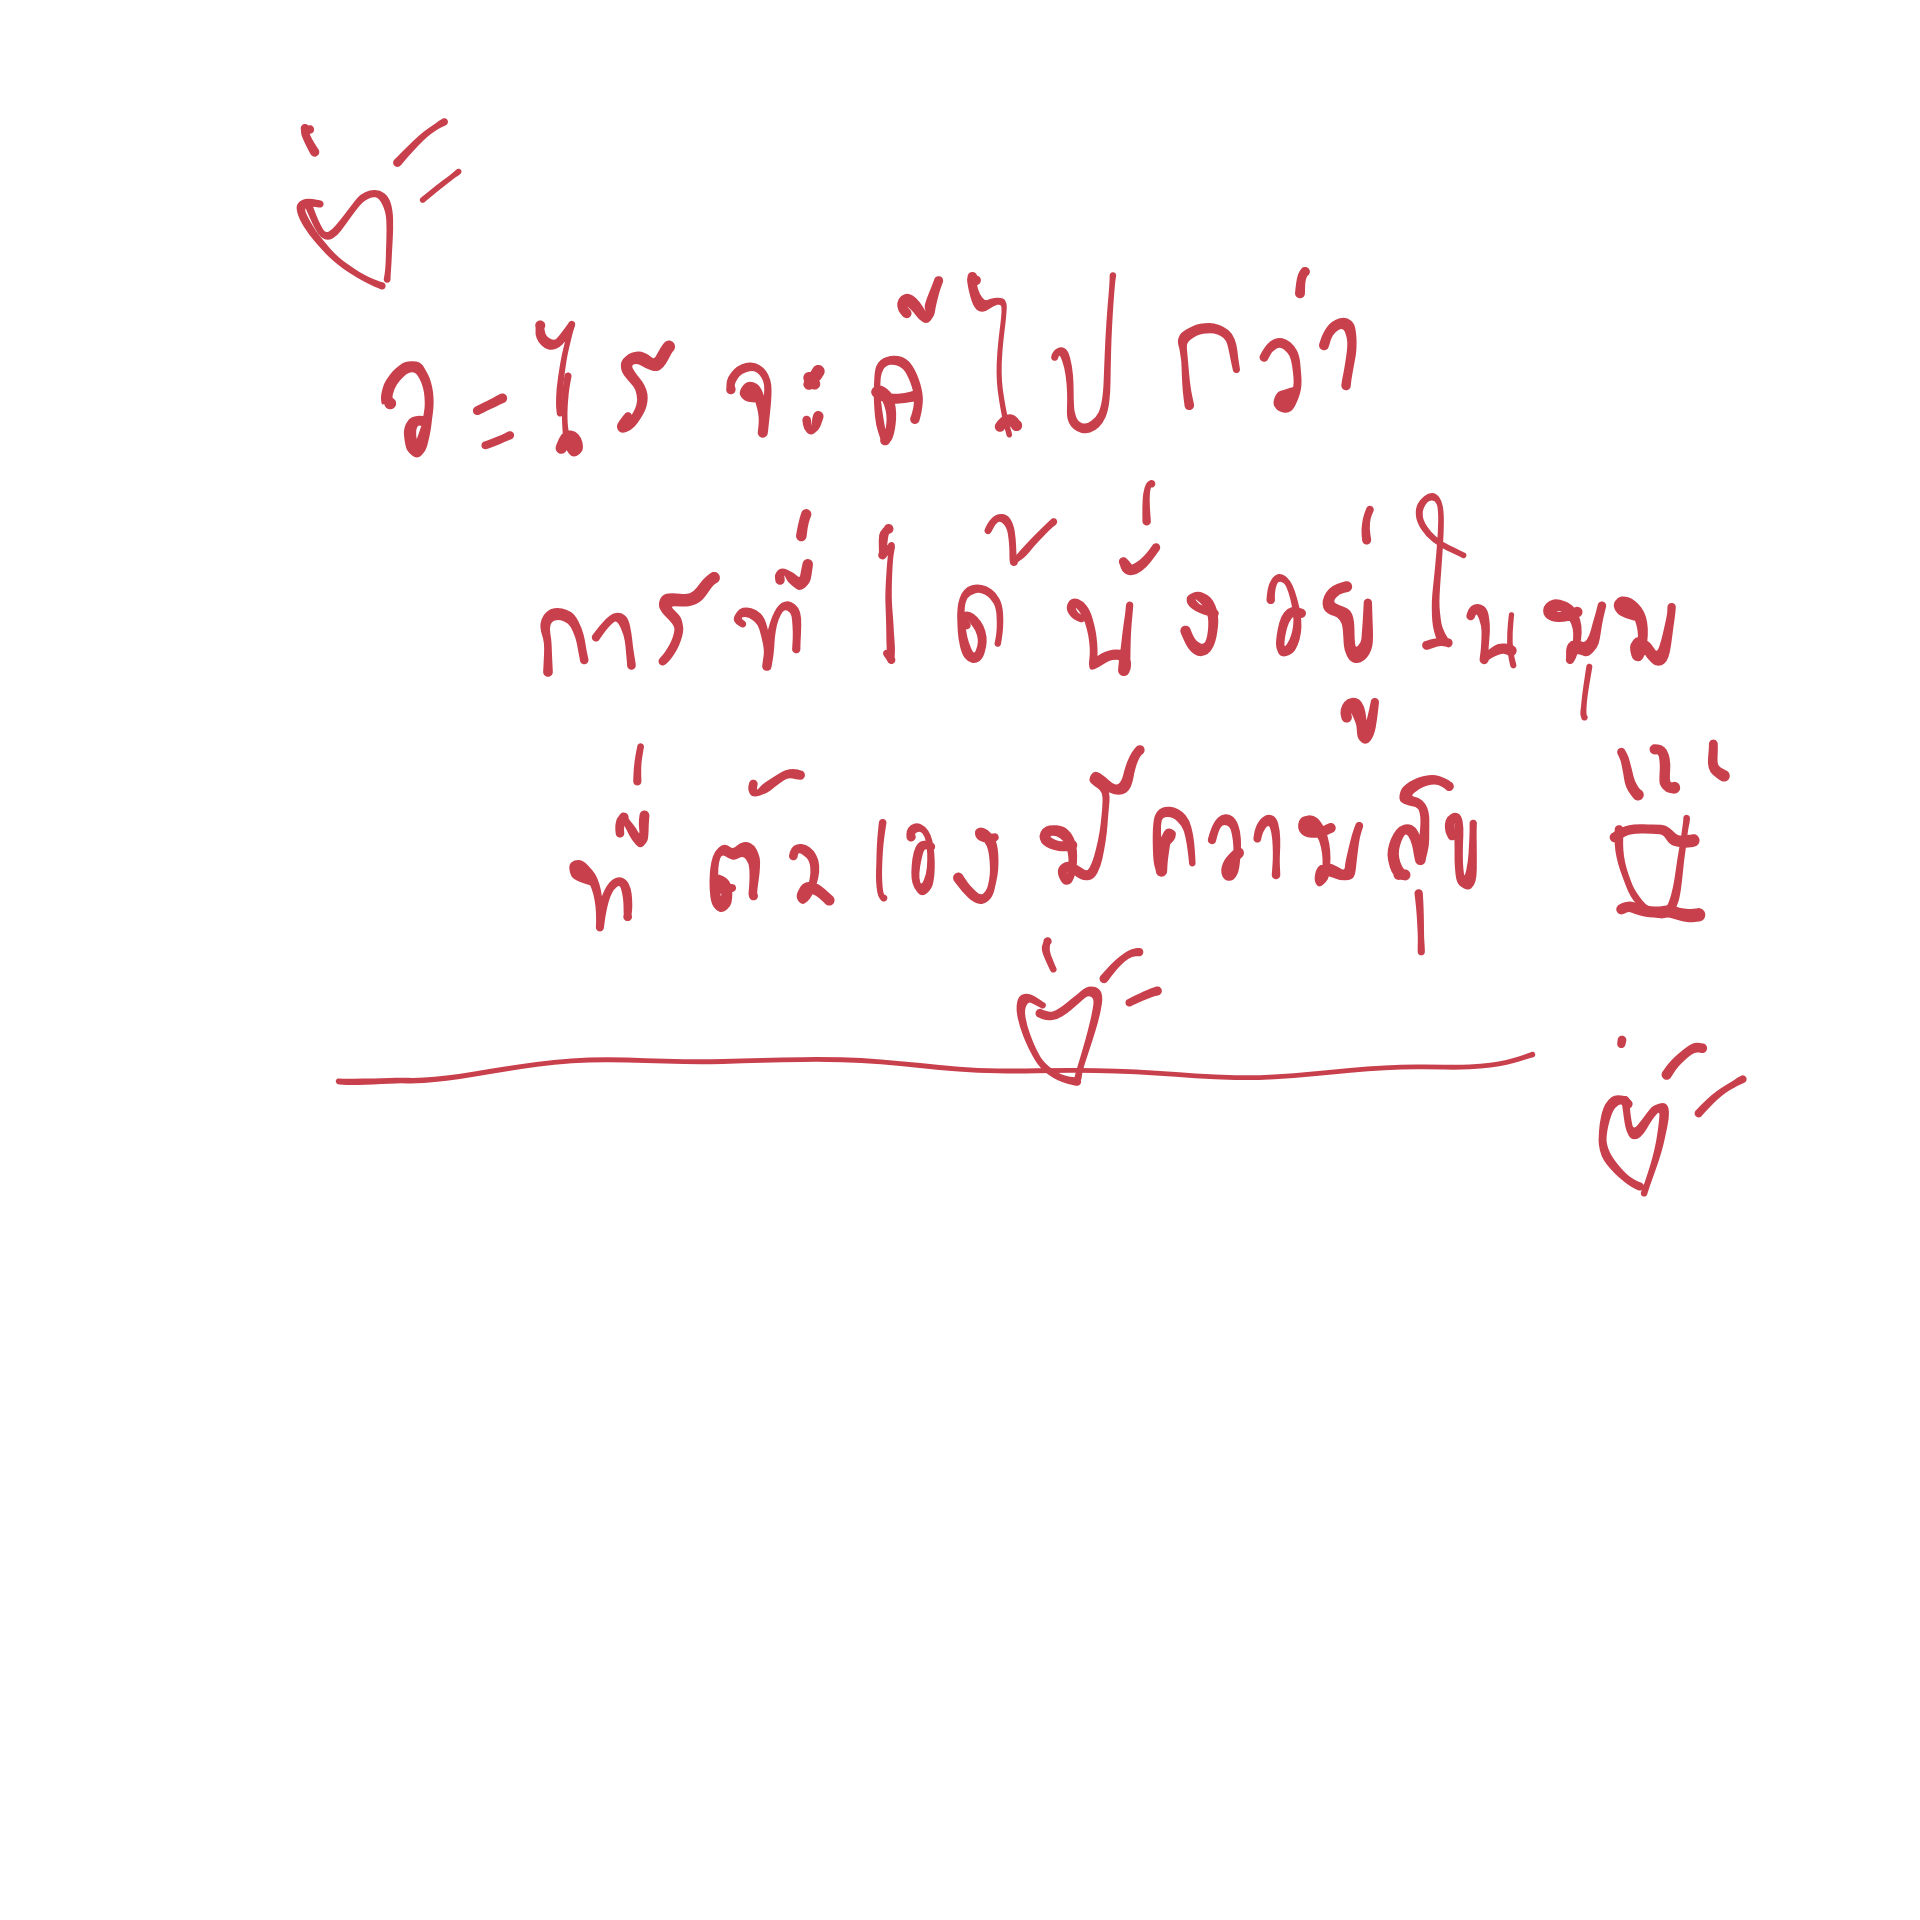 อะไรจะดีไปกว่า
การที่ได้นั่งอยู่ในมุม
ที่ตัวเองมีความสุข